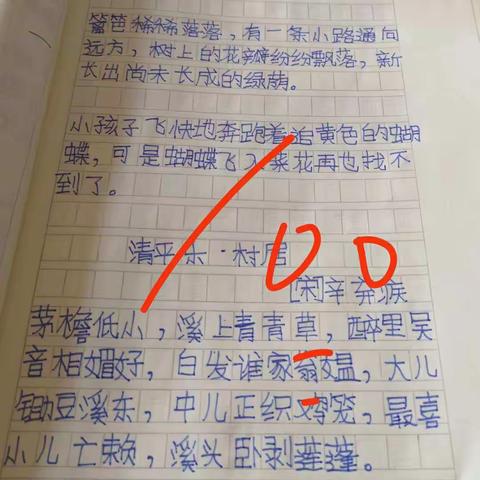 篱笆稀稀落落，有一条小路通向
远方，树上的花瓣纷纷飘落，新
长出尚未长成的绿荫。
小孩子飞快地奔跑着追黄色的蝴
蝶，可是蝴蝶飞入菜花再也找不
到了。
清平乐·村居
[宋]辛弃疾
茅檐低小，溪上青青草，醉里吴
音相媚好，白发谁家翁媪，大儿
锄豆溪东，中儿正织鸡笼，最喜
小儿亡赖，溪头卧剥莲蓬。
100